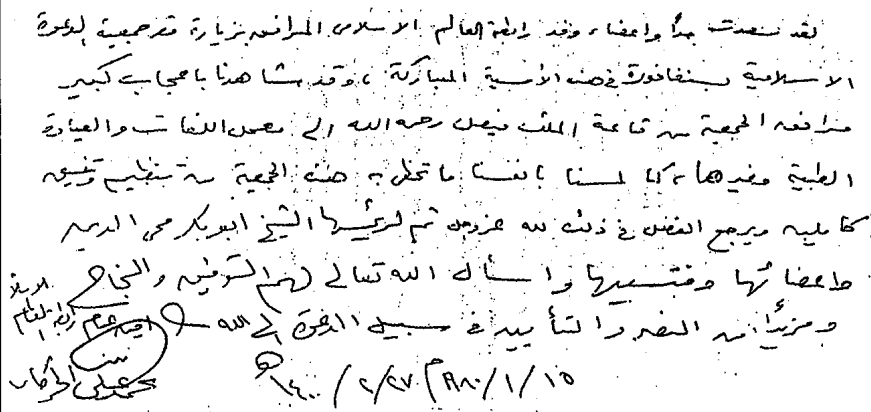 لقد سعدت جداً وأعضاء وفد رابطة العالم الاسلامي المرافق بزيارة مقر جمعية الدعوة
الاسلامية بسنغافورة في هذه الأمسية المباركة ، وقد شاهدنا باعجاب كبير
مرافق الجمعية من قاعة الملك فيصل رحمه الله الى معمل اللغات والعيادة
الطبية وغيرها ، كما لمسنا بانفسنا ما تحظى به هذه الجمعية من تنظيم وتنسيق
كاملين ويرجع الفضل في ذلك لله عز وجل ثم لرئيسها الشيخ ابوبكر محي الدين
واعضائها ومنتسبيها واسأل الله تعالى لهم التوفيق والنجاح
ومزيداً من النصر والتأييد في سبيل الدعوة الى الله
امين عام رابطة العالم الاسلامي
محمد علي الحركان
١٥/١/١٩٨٠م ٢٧/٢/١٤٠٠هـ